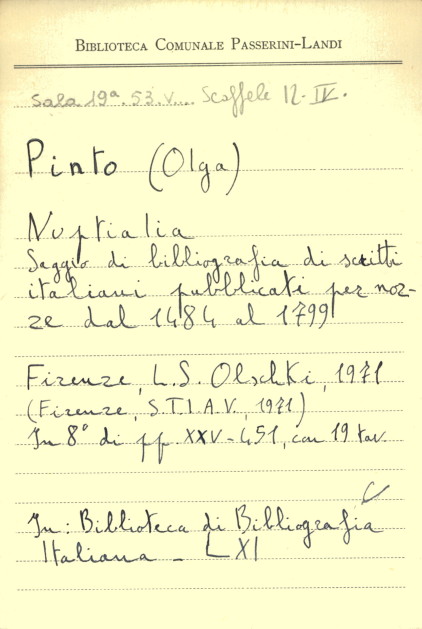 BIBLIOTECA COMUNALE PASSERINI-LANDI
Sala 19ª. 53. V.... Scaffale 12. IV.
Pinto (Olga)
Nuptialia
Saggio di bibliografia di scritti
italiani pubblicati per noz-
ze dal 1484 al 1799
Firenze, L.S. Olschki, 1971
(Firenze, S.T.I.A.V., 1971)
In 8° di pp. XXV-451, con 19 tav.
In: Biblioteca di Bibliografia
Italiana - LXI